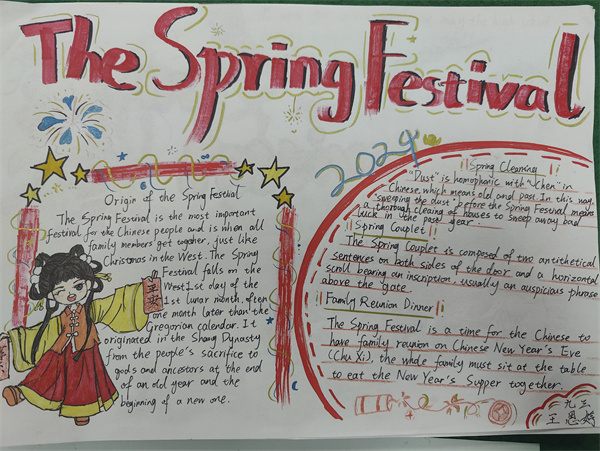 The Spring Festival
2024
Origin of the Spring Festival
The Spring Festival is the most important
festival for the Chinese people and is when all
family members get together, just like
Christmas in the West. The Spring
Festival falls on the
West1st day of the
1st lunar month, often
one month later than the
Gregorian calendar. It
originated in the Shang Dynasty
from the people's sacrifice to
gods and ancestors at the end
of an old year and the
beginning of a new one.
Spring Cleaning
"Dust" is homophonic with "chen" in
Chinese, which means old and past. In this way,
"sweeping the dust" before the Spring Festival means
a thorough cleaing of houses to sweep away bad
luck in the past year
Spring Couplet
The Spring Couplet is composed of two antithetical
sentences on both sides of the door and a horizontal
scroll bearing an inscription, usually an auspicious phrase
above the gate.
Family Reunion Dinner
The Spring Festival is a time for the Chinese to
have family reunion on Chinese New Year's Eve
(Chu Xi), the whole family must sit at the table
to eat the New Year's Supper together.
九三
王恩婷